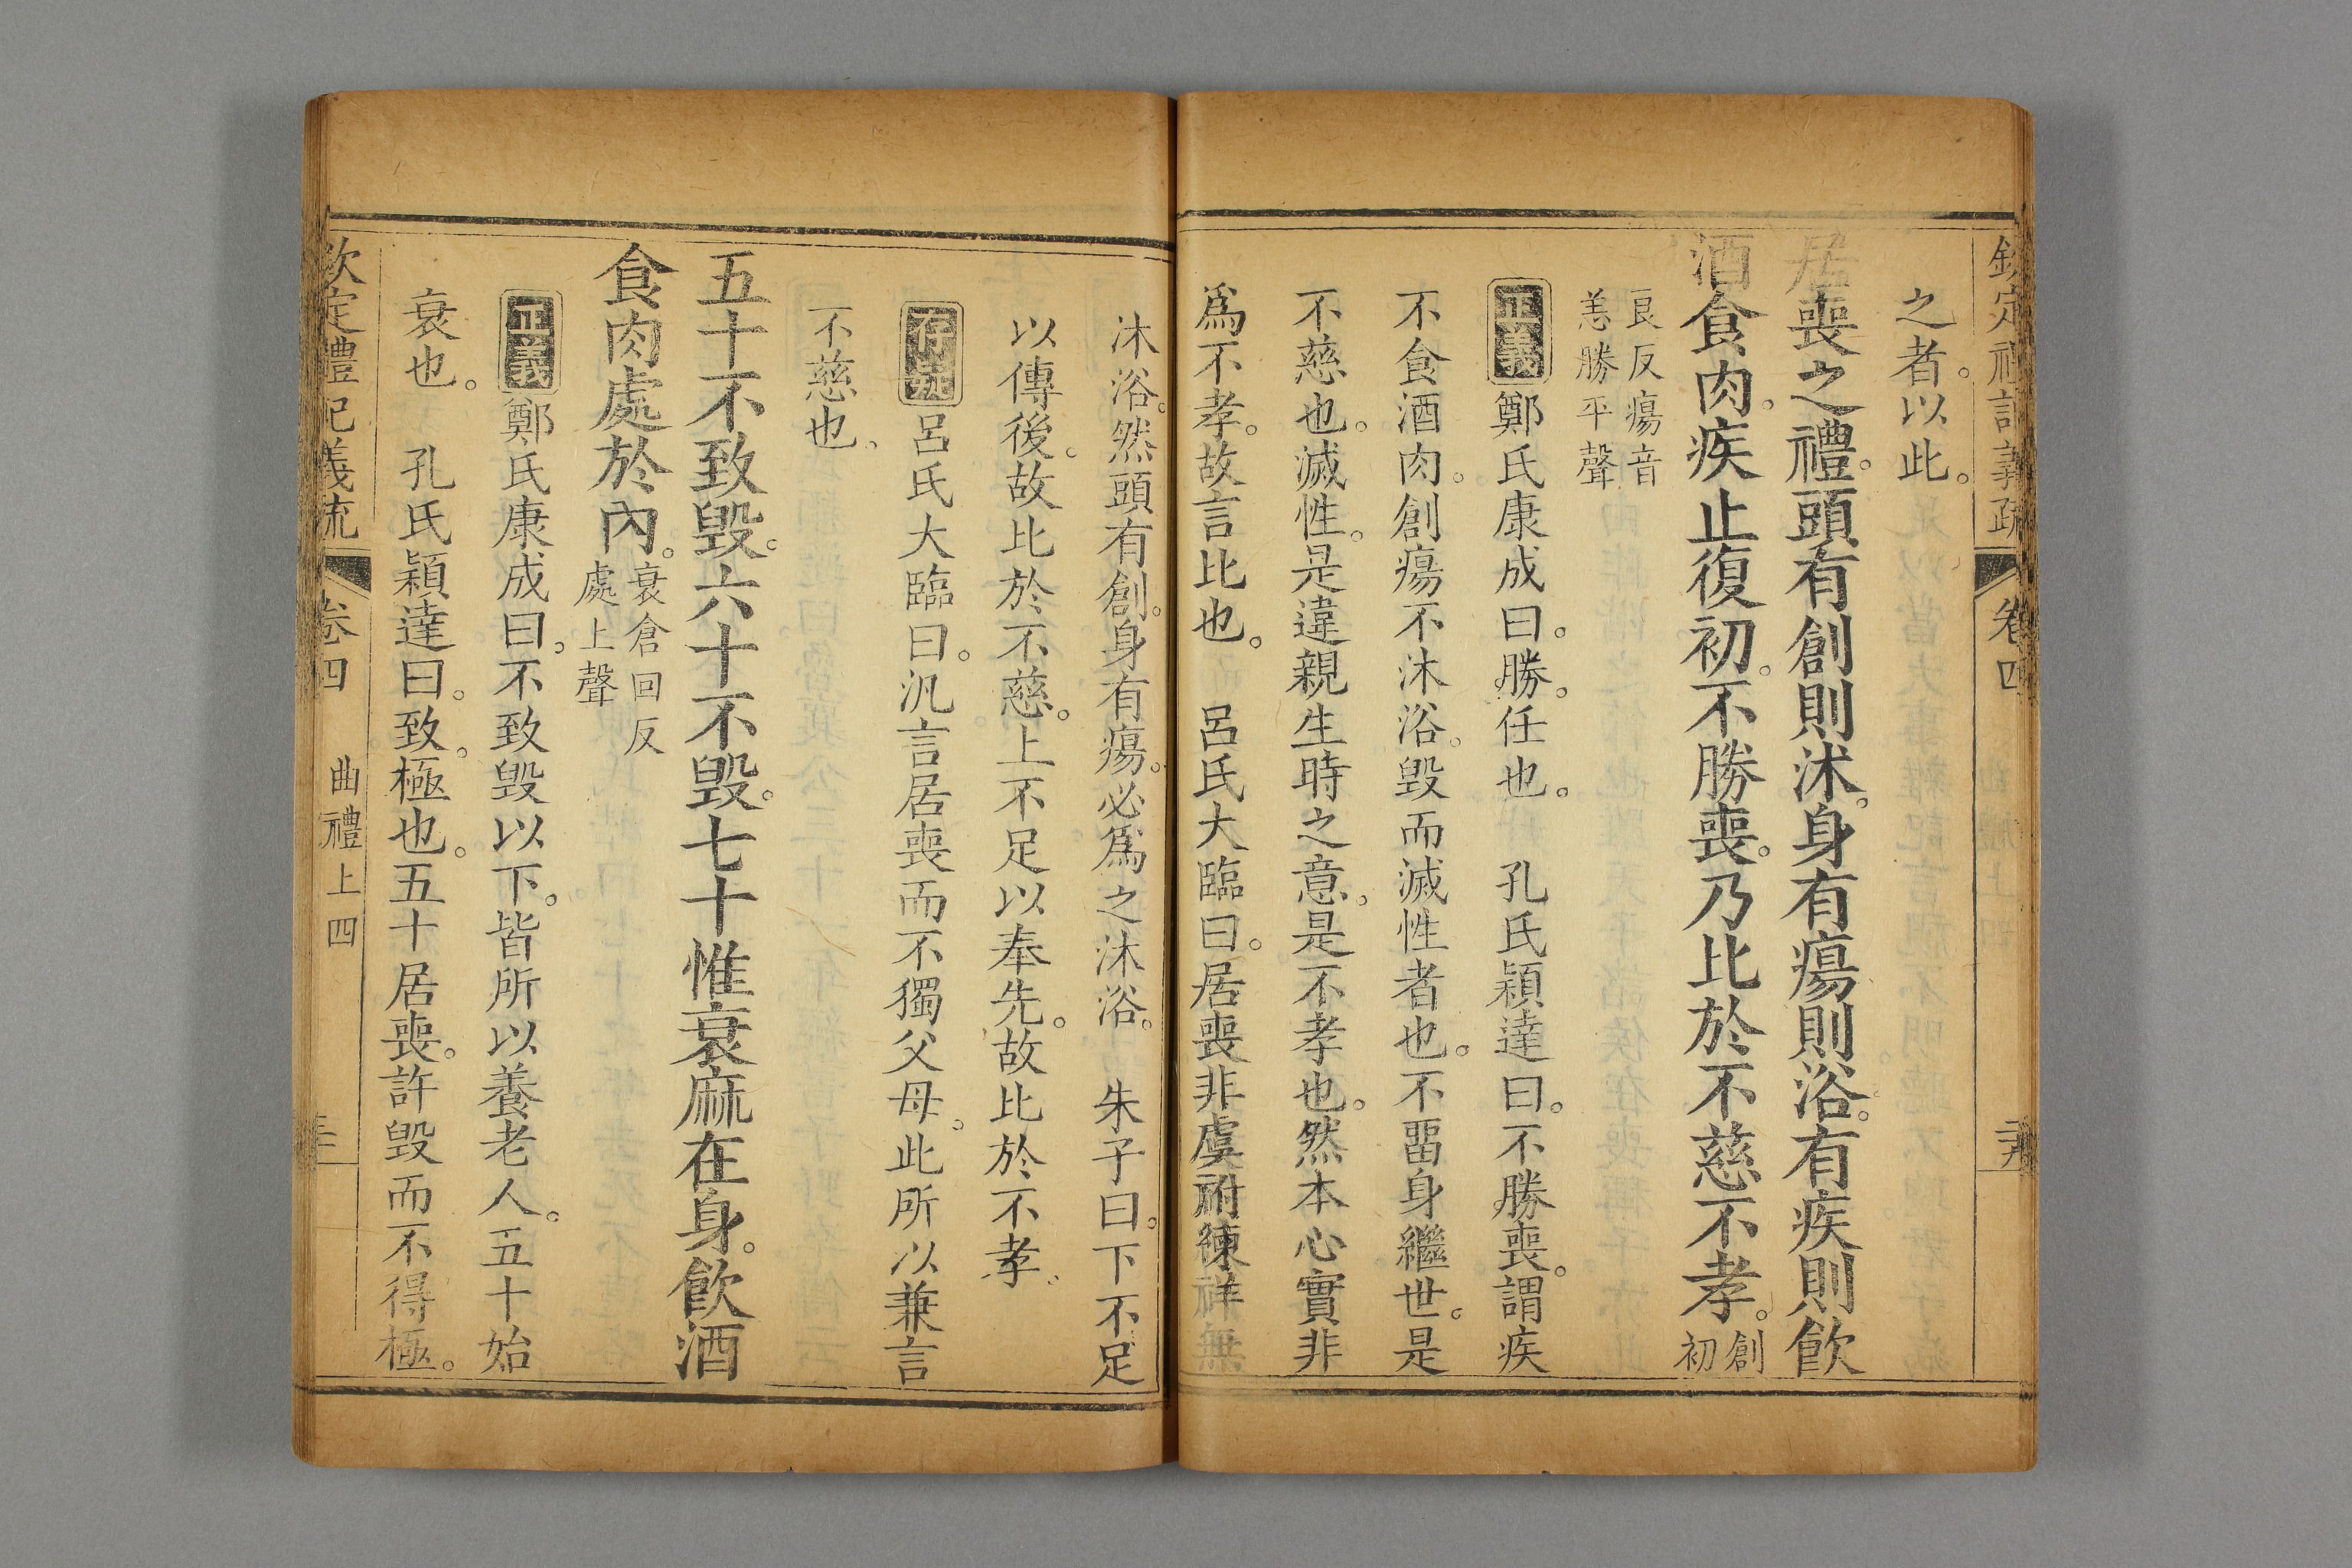 欽定禮記義疏 卷四
之者。以此。
居喪之禮。頭有創則沐。身有瘍則浴。有疾則飲
酒食肉。疾止復初。不勝喪。乃比於不慈不孝。創初
良反瘍音
恙勝平聲
正義 鄭氏康成曰。勝。任也。 孔氏穎達曰。不勝喪。謂疾
不食酒肉。創瘍不沐浴。毀而滅性者也。不畱身繼世。是
不慈也。滅性。是違親生時之意。是不孝也。然本心實非
爲不孝。故言比也。 呂氏大臨曰。居喪非虞祔練祥無
沐浴。然頭有創。身有瘍。必爲之沐浴。 朱子曰。下不足
以傳後。故比於不慈。上不足以奉先。故比於不孝。
存疑 呂氏大臨曰。汎言居喪而不獨父母。此所以兼言
不慈也。
五十不致毀。六十不毀。七十惟衰麻在身。飲酒
食肉處於內。衰倉回反
處上聲
正義 鄭氏康成曰。不致毀以下。皆所以養老人。五十始
衰也。 孔氏穎達曰。致。極也。五十居喪。許毀而不得極。
欽定禮記義疏 卷四 曲禮上四